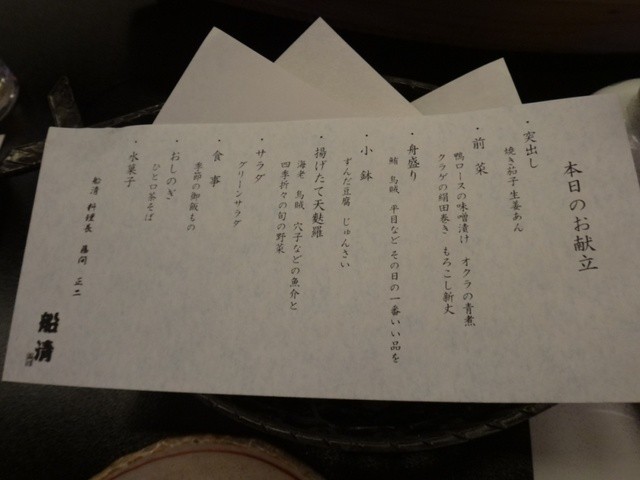 本日のお献立
・突出し
焼き茄子生姜あん
・前菜
鴨ロースの味噌漬け オクラの青煮
クラゲの絹田巻き もろこし新丈
・舟盛り
鮪 烏賊 平目など その日の一番いい品を
・小鉢
ずんだ豆腐 じゅんさい
・揚げたて天麩羅
海老 烏賊 穴子などの魚介と
四季折々の旬の野菜
・サラダ
グリーンサラダ
・食事
季節の御飯もの
・おしのぎ
ひと口茶そば
・水菓子
船清 料理長 藤間 正二
船清